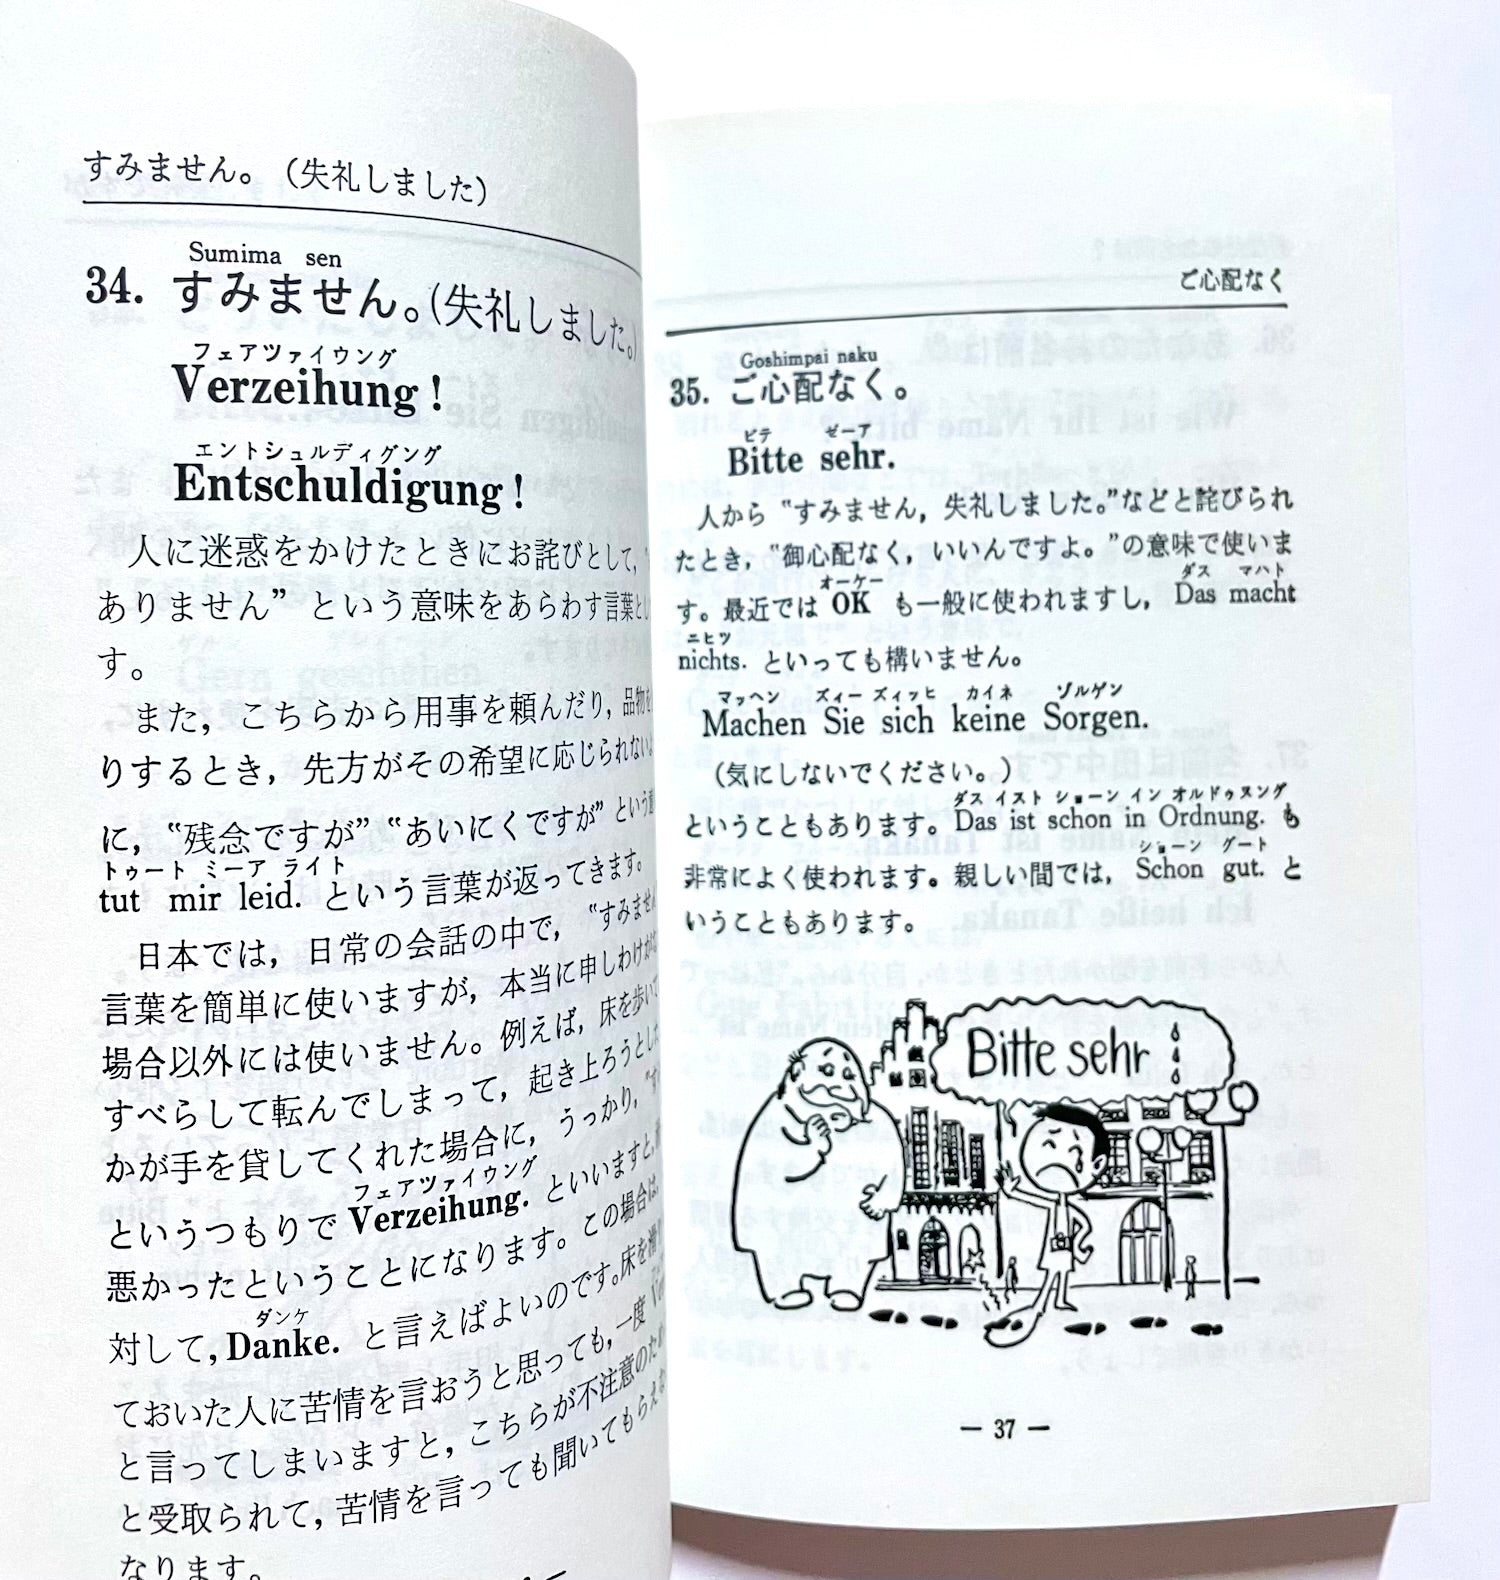 すみません。（失礼しました）
Sumima sen
34. すみません。（失礼しました。）
フェアツァイウング
Verzeihung !
エントシュルディグング
Entschuldigung !
人に迷惑をかけたときにお詫びとして，
ありません” という意味をあらわす言葉と
す。
また，こちらから用事を頼んだり，品物を
りするとき，先方がその希望に応じられない
に，“残念ですが”“あいにくですが” という
トゥート ミーア ライト
tut mir leid. という言葉が返ってきます。
日本では，日常の会話の中で，“すみません
言葉を簡単に使いますが，本当に申しわけが
場合以外には使いません。例えば，床を歩いて
すべらして転んでしまって，起き上ろうとした
かが手を貸してくれた場合に，うっかり，“す
フェアツァイウング
というつもりで Verzeihung. といいますと，
悪かったということになります。この場合は，
ダンケ
対して，Danke. と言えばよいのです。床を滑
ておいた人に苦情を言おうと思っても，一度
と言ってしまいますと，こちらが不注意のため
と受取られて，苦情を言っても聞いてもらえな
なります。
ご心配なく
Goshimpai naku
35. ご心配なく。
ビテ ゼーア
Bitte sehr.
人から “すみません，失礼しました。”などと詫びられ
たとき，“御心配なく，いいんですよ。”の意味で使いま
オーケー ダス マハト
す。最近では OK も一般に使われますし， Das macht
ニヒツ
nichts. といっても構いません。
マッヘン ズィー ズィッヒ カイネ ゾルゲン
Machen Sie sich keine Sorgen.
（気にしないでください。）
ダス イスト ショーン イン オルドゥヌング
ということもあります。Das ist schon in Ordnung. も
ショーン グート
非常によく使われます。親しい間では， Schon gut. と
いうこともあります。
Bitte sehr
— 37 —